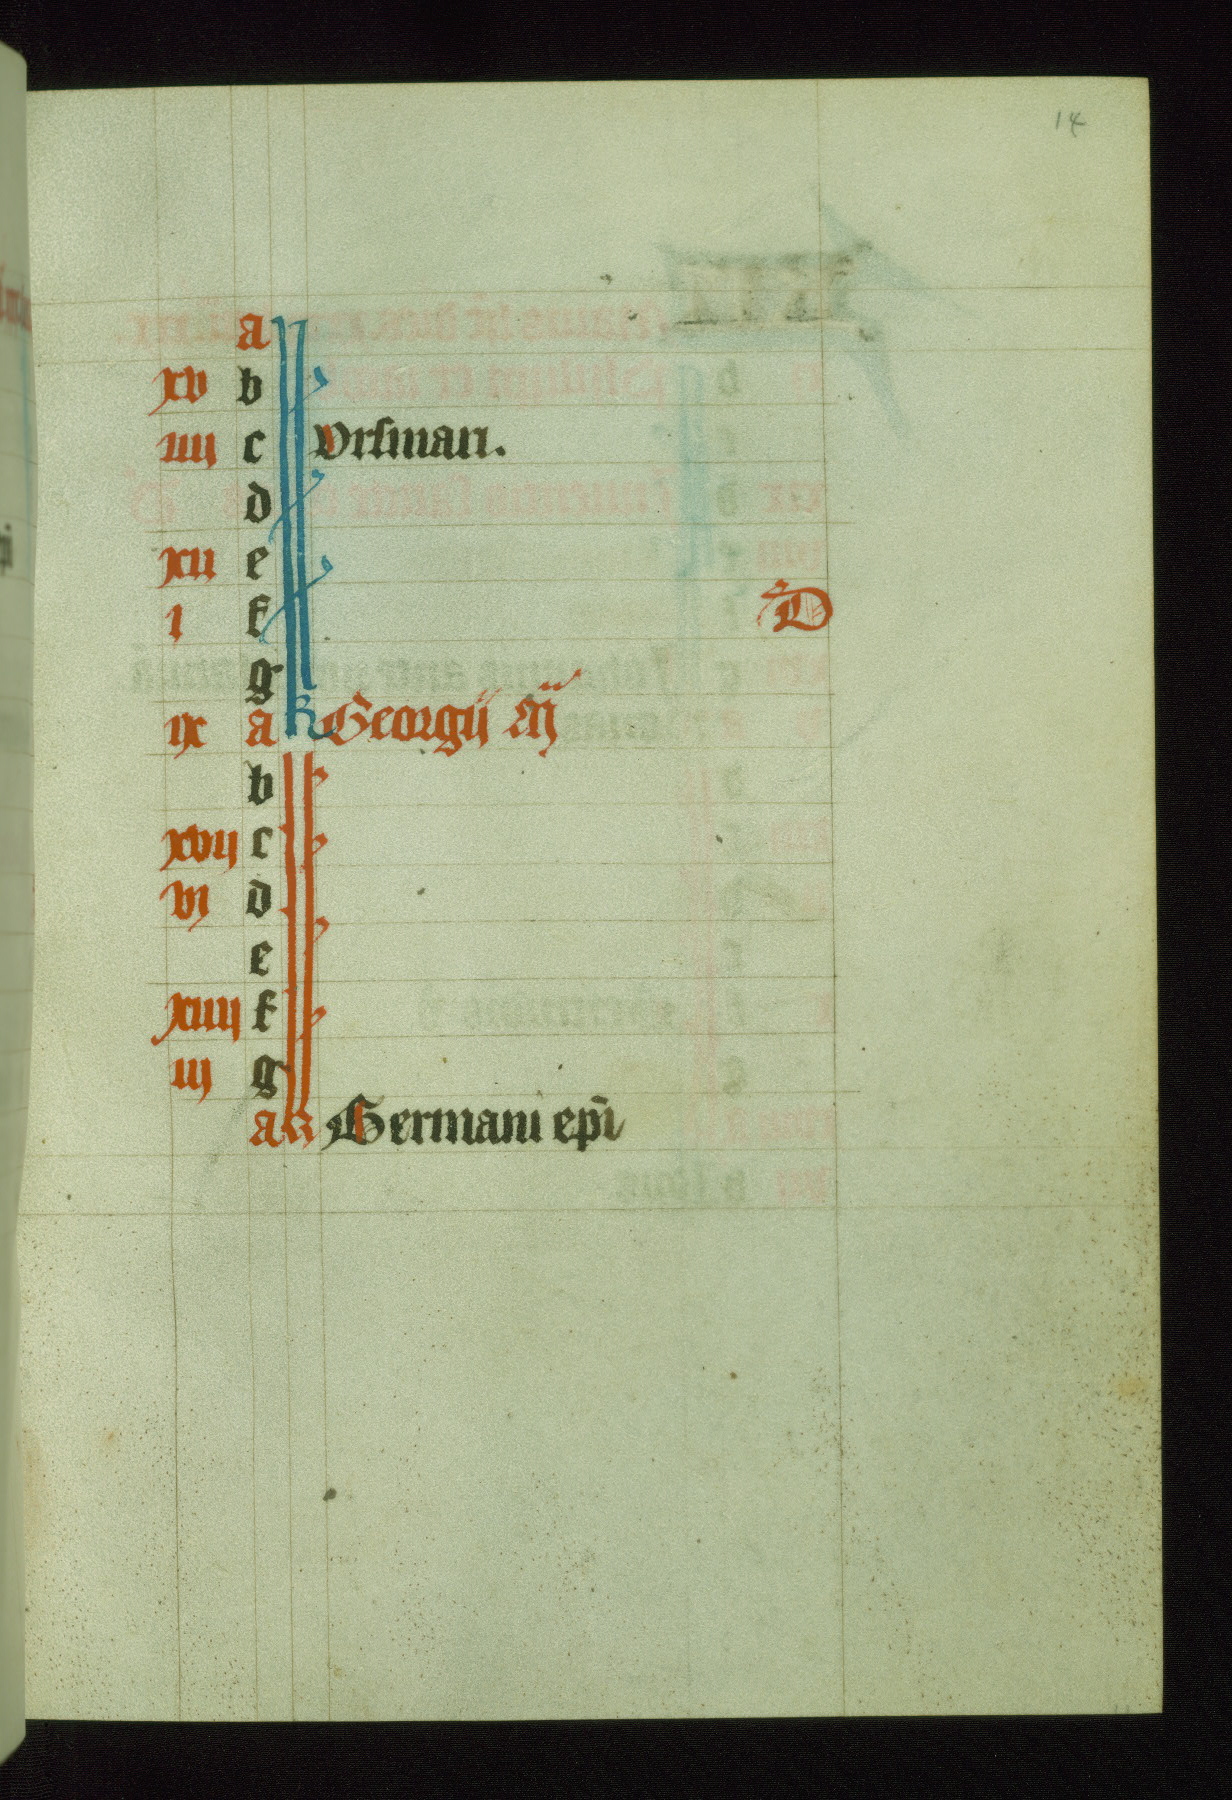 14
a
xv b
iiii c Vrsmari.
d
xii e
i f D
g
ix a K Georgii mr̃
b
xvii c
vi d
e
xiiii f
iii g
a K Germani ep̃i